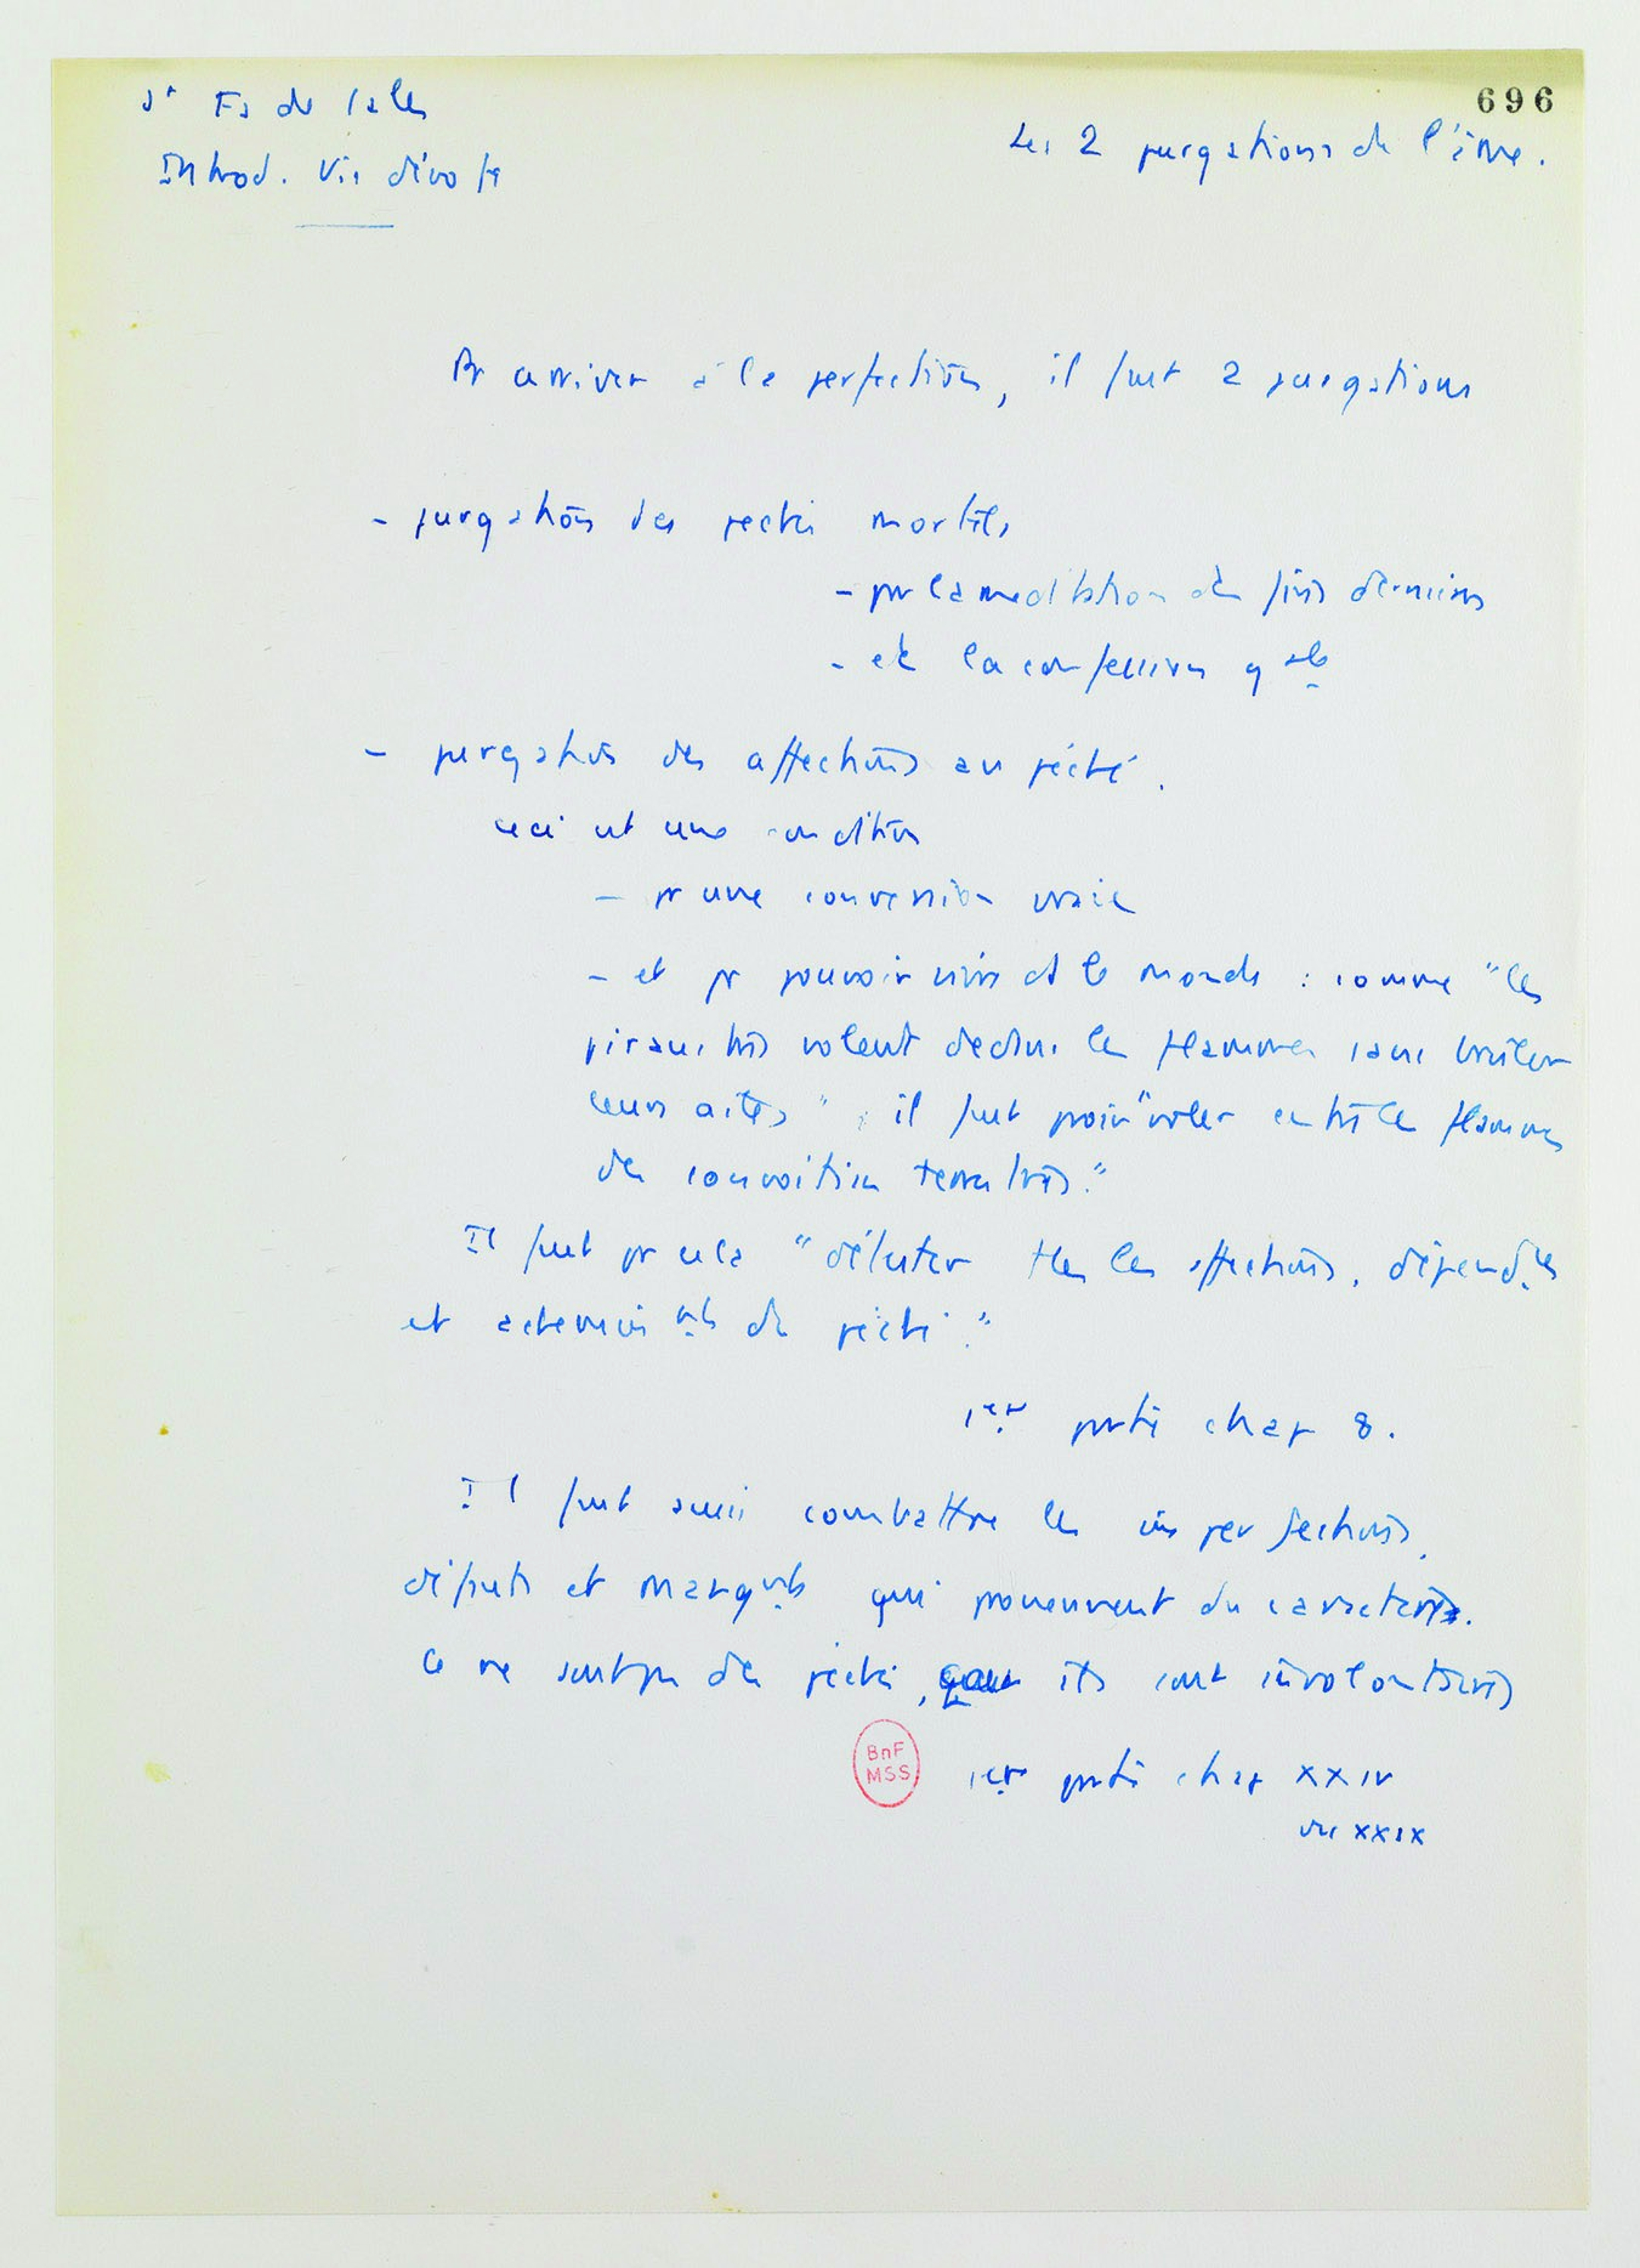 St Fs de Sales
696
Les 2 purgations de l'âme.
Introd. Vie dévote
Pr arriver à la perfection, il faut 2 purgations
- purgation des péchés mortels
- par la méditation des fins dernières
- et la confession gale
- purgation des affections au péché.
ceci est une condition
- pr une conversion vraie
- et pr pouvoir vivre ds le monde : comme "les
piraustres volent dedans les flammes sans brûler
leurs ailes", il faut pouvoir "voler entre les flammes
des convoitises terrestres."
Il faut pr cela "détester ttes les affections, dépendces
et achemints du péché."
1ère partie chap 8.
Il faut aussi combattre les imperfections,
défauts et manqmts qui proviennent du caractère.
Ce ne sont pas des péchés, ils sont involontaires
BnF
MSS
1ère partie chap XXIV
XXIX